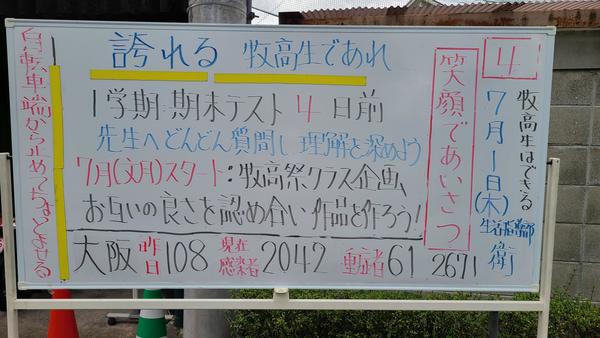 4
牧高生はできる
7月1日(木)
生活指導部
衛
笑顔であいさつ
誇れる 牧高生であれ
1学期期末テスト 4 日前
先生へどんどん質問し理解を深めよう
7月(文月)スタート:牧高祭クラス企画
お互いの良さを認め合い 作品を作ろう!
大阪 昨日 108 現在感染者 2042 重症者 61 2671
自転車端から止めつめとよせる